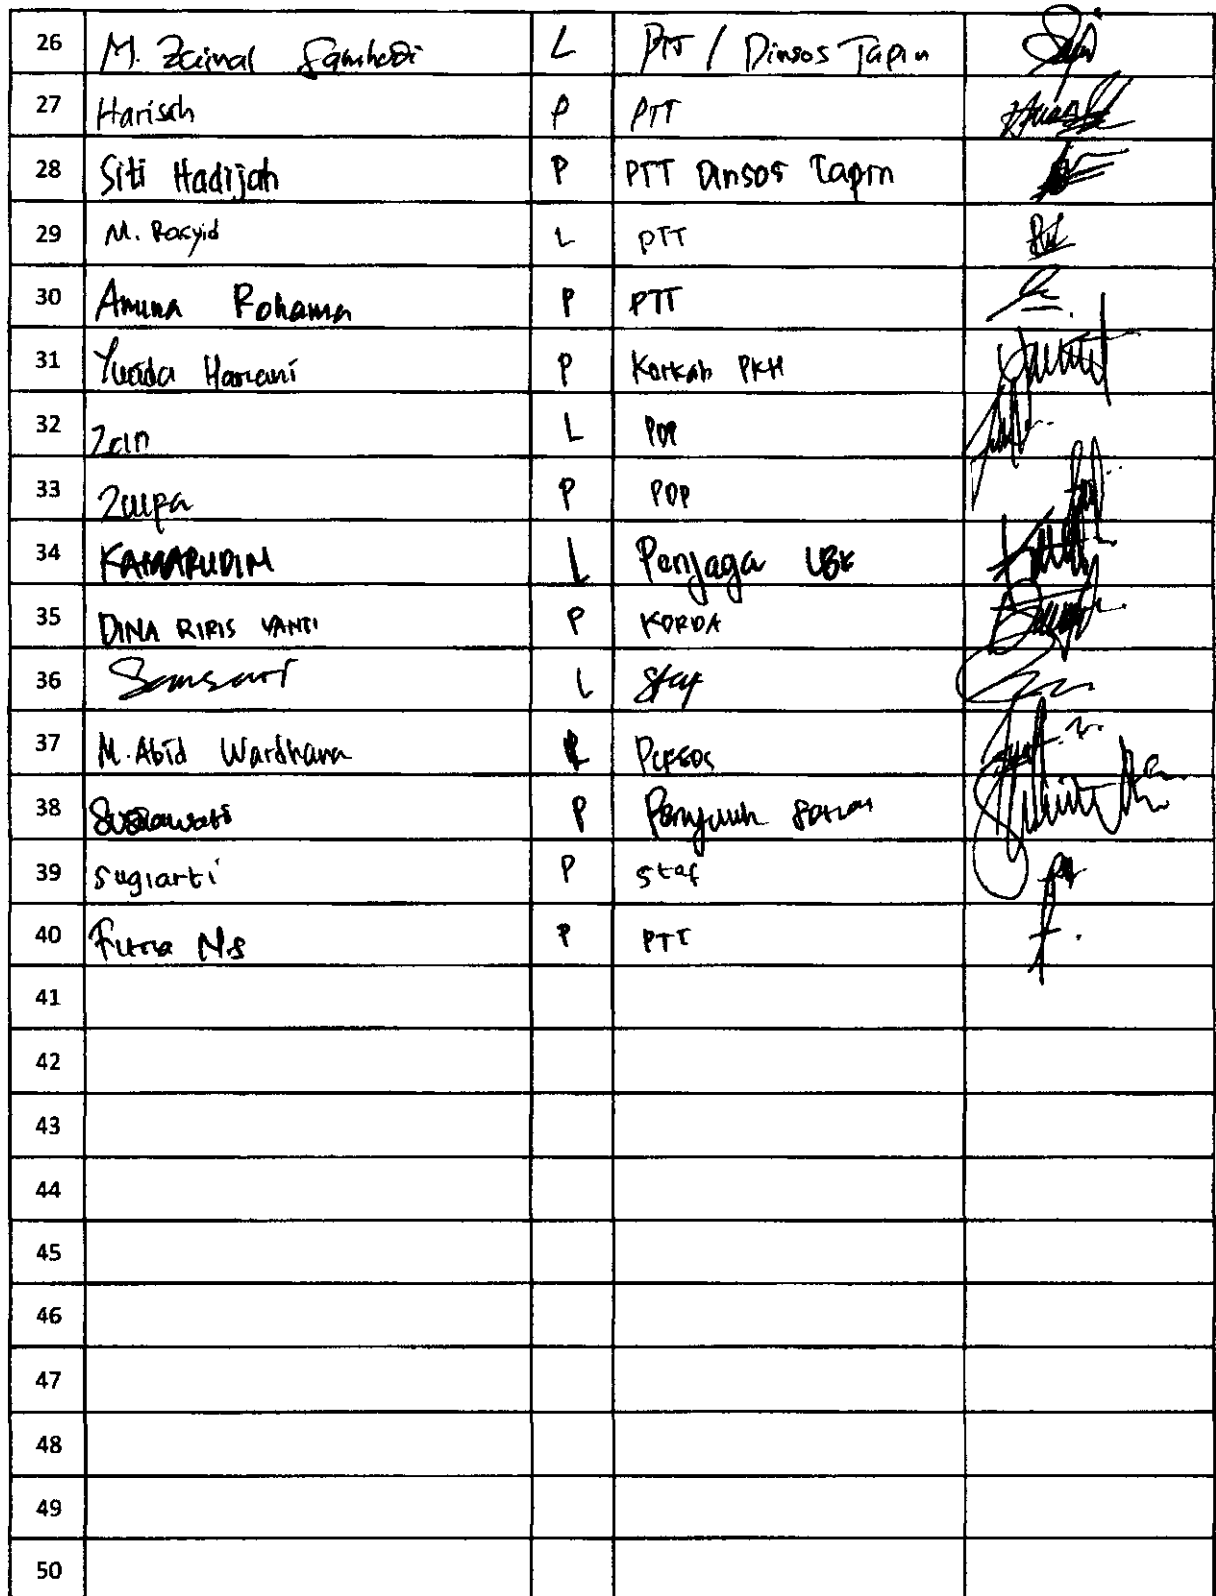 26 M. Zainal L PTT / Dinsos Tapin
27 Harisah P PTT
28 Siti Hadijah P PTT Dinsos Tapin
29 M. Rasyid L PTT
30 Amuna Rohama P PTT
31 Yurida Hariani P Korkab PKH
32 Zain L PDP
33 P PDP
34 KAMARUDIN L Penjaga LBK
35 DINA RIRIS YANTI P KORDA
36 Samsuri L Staf
37 M. Abid Wardhana L Pepsos
38 P
39 Sugiarti P Staf
40 P PTT
41
42
43
44
45
46
47
48
49
50